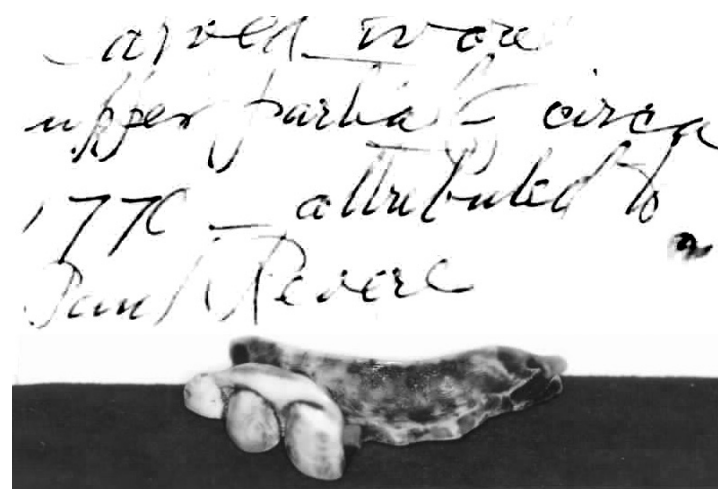 carved ivory
upper partial circa
1770 - attributed to
Paul Revere